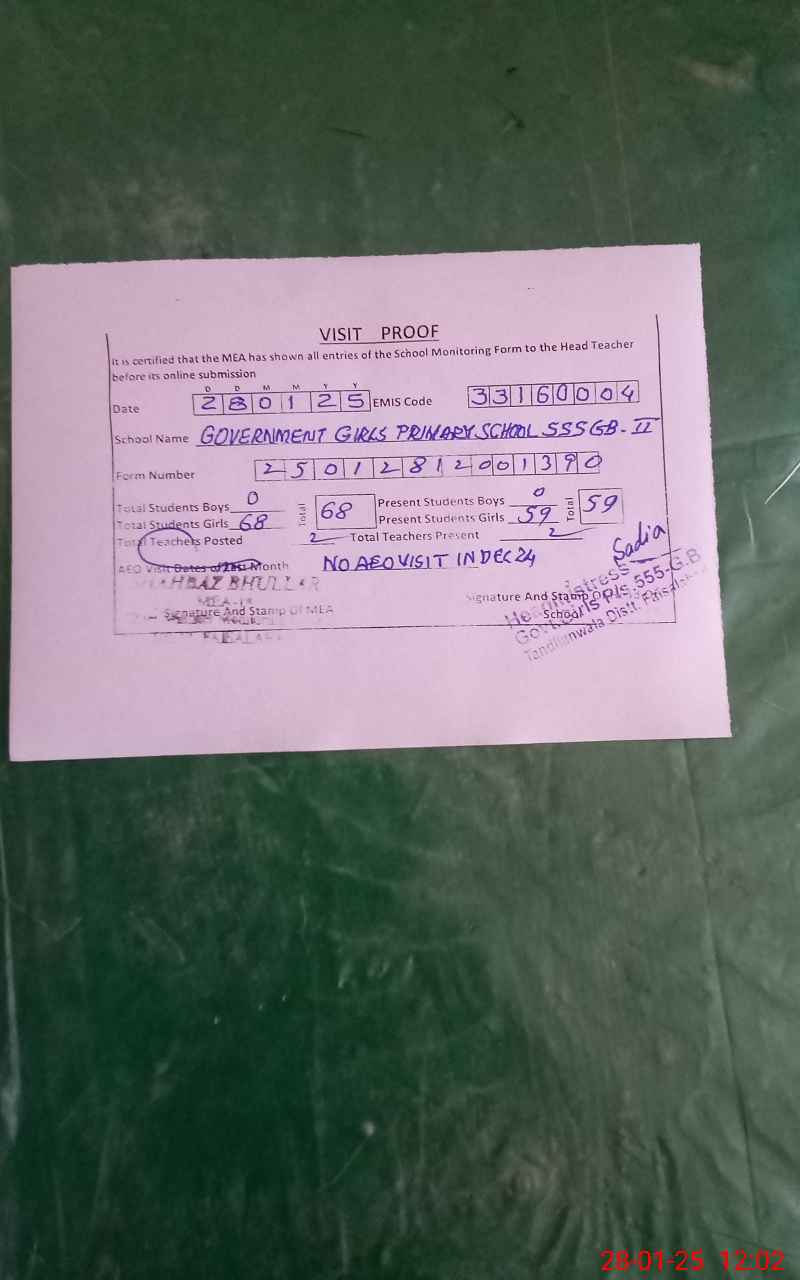 VISIT PROOF
It is certified that the MEA has shown all entries of the School Monitoring Form to the Head Teacher
before its online submission
D D M M Y Y
Date 280125 EMIS Code 33160004
School Name GOVERNMENT GIRLS PRIMARY SCHOOL 555 GB-II
Form Number 25012812001390
Total Students Boys 0 Total 68 Present Students Boys 0 Total 59
Total Students Girls 68 Present Students Girls 59
Total Teachers Posted 2 Total Teachers Present 2
AEO Visit Dates of Last Month NO AEO VISIT IN DEC 24
Sadia
BHULLAR
MEA
Signature And Stamp Of MEA
Signature And Stamp Of
School
Headmistress
Govt. Girls P/s. 555-G.B
Tandlianwala Distt. Faisalabad
28-01-25 12:02